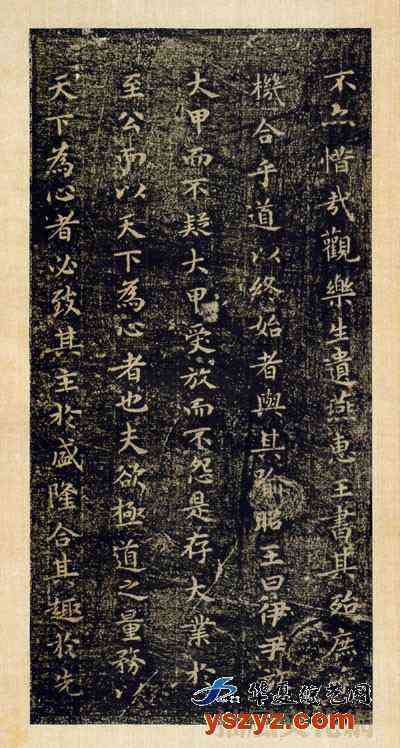 不亦惜哉觀樂生遺燕惠王書其殆庶
機合乎道以終始者與其喻昭王曰伊尹
大甲而不疑大甲受放而不怨是存大業於
至公而以天下為心者也夫欲極道之量務以
天下為心者必致其主於盛隆合其趣於先
华夏综艺网
yszyz.com